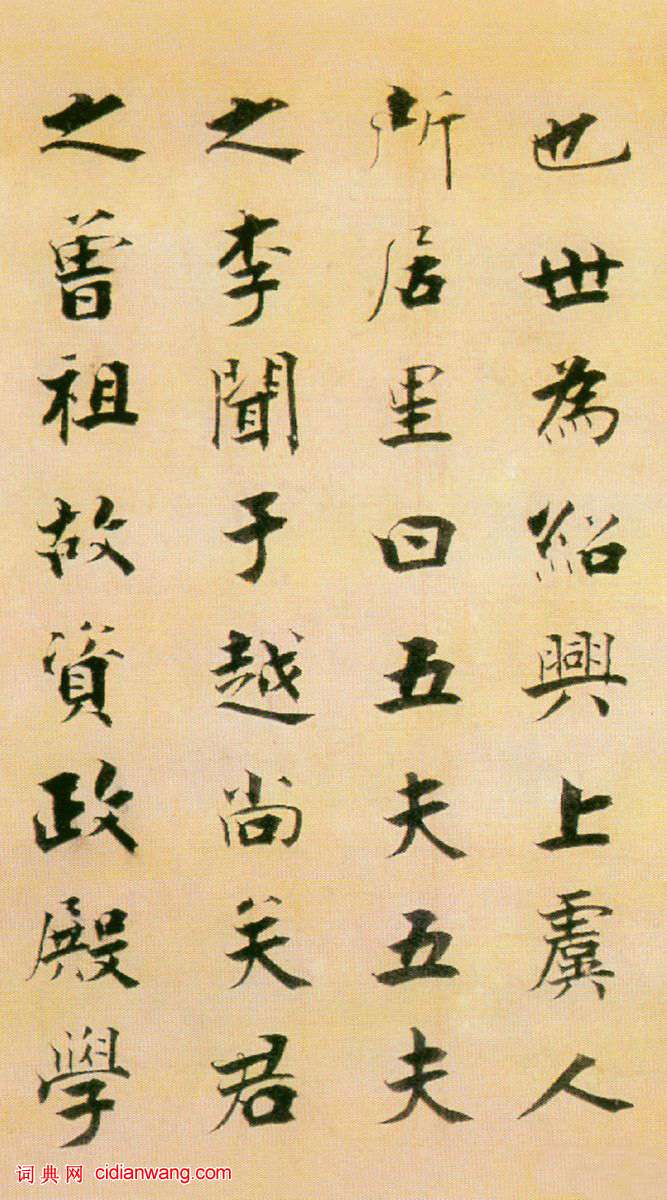 也世為紹興上虞人
所居里曰五夫五夫
之李聞于越尚矣君
之曾祖故資政殿學
词典网 cidianwang.com